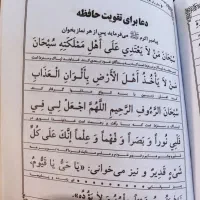 دعا برای تقویت حافظه
پیامبر اکرم ﷺ می‌فرماید پس از هر نماز بخوان
سُبْحَانَ مَنْ لَا يَعْتَدِي عَلَى أَهْلِ مَمْلَكَتِهِ سُبْحَانَ
مَنْ لَا يَأْخُذُ أَهْلَ الْأَرْضِ بِأَلْوَانِ الْعَذَابِ
سُبْحَانَ الرَّءُوفِ الرَّحِيمِ اللَّهُمَّ اجْعَلْ لِي فِي
قَلْبِي نُوراً وَ بَصَراً وَ فَهْماً وَ عِلْماً إِنَّكَ عَلَى كُلِّ
شَيْءٍ قَدِيرٌ و نیز می‌خوانی: «يَا حَيُّ يَا قَيُّومُ،